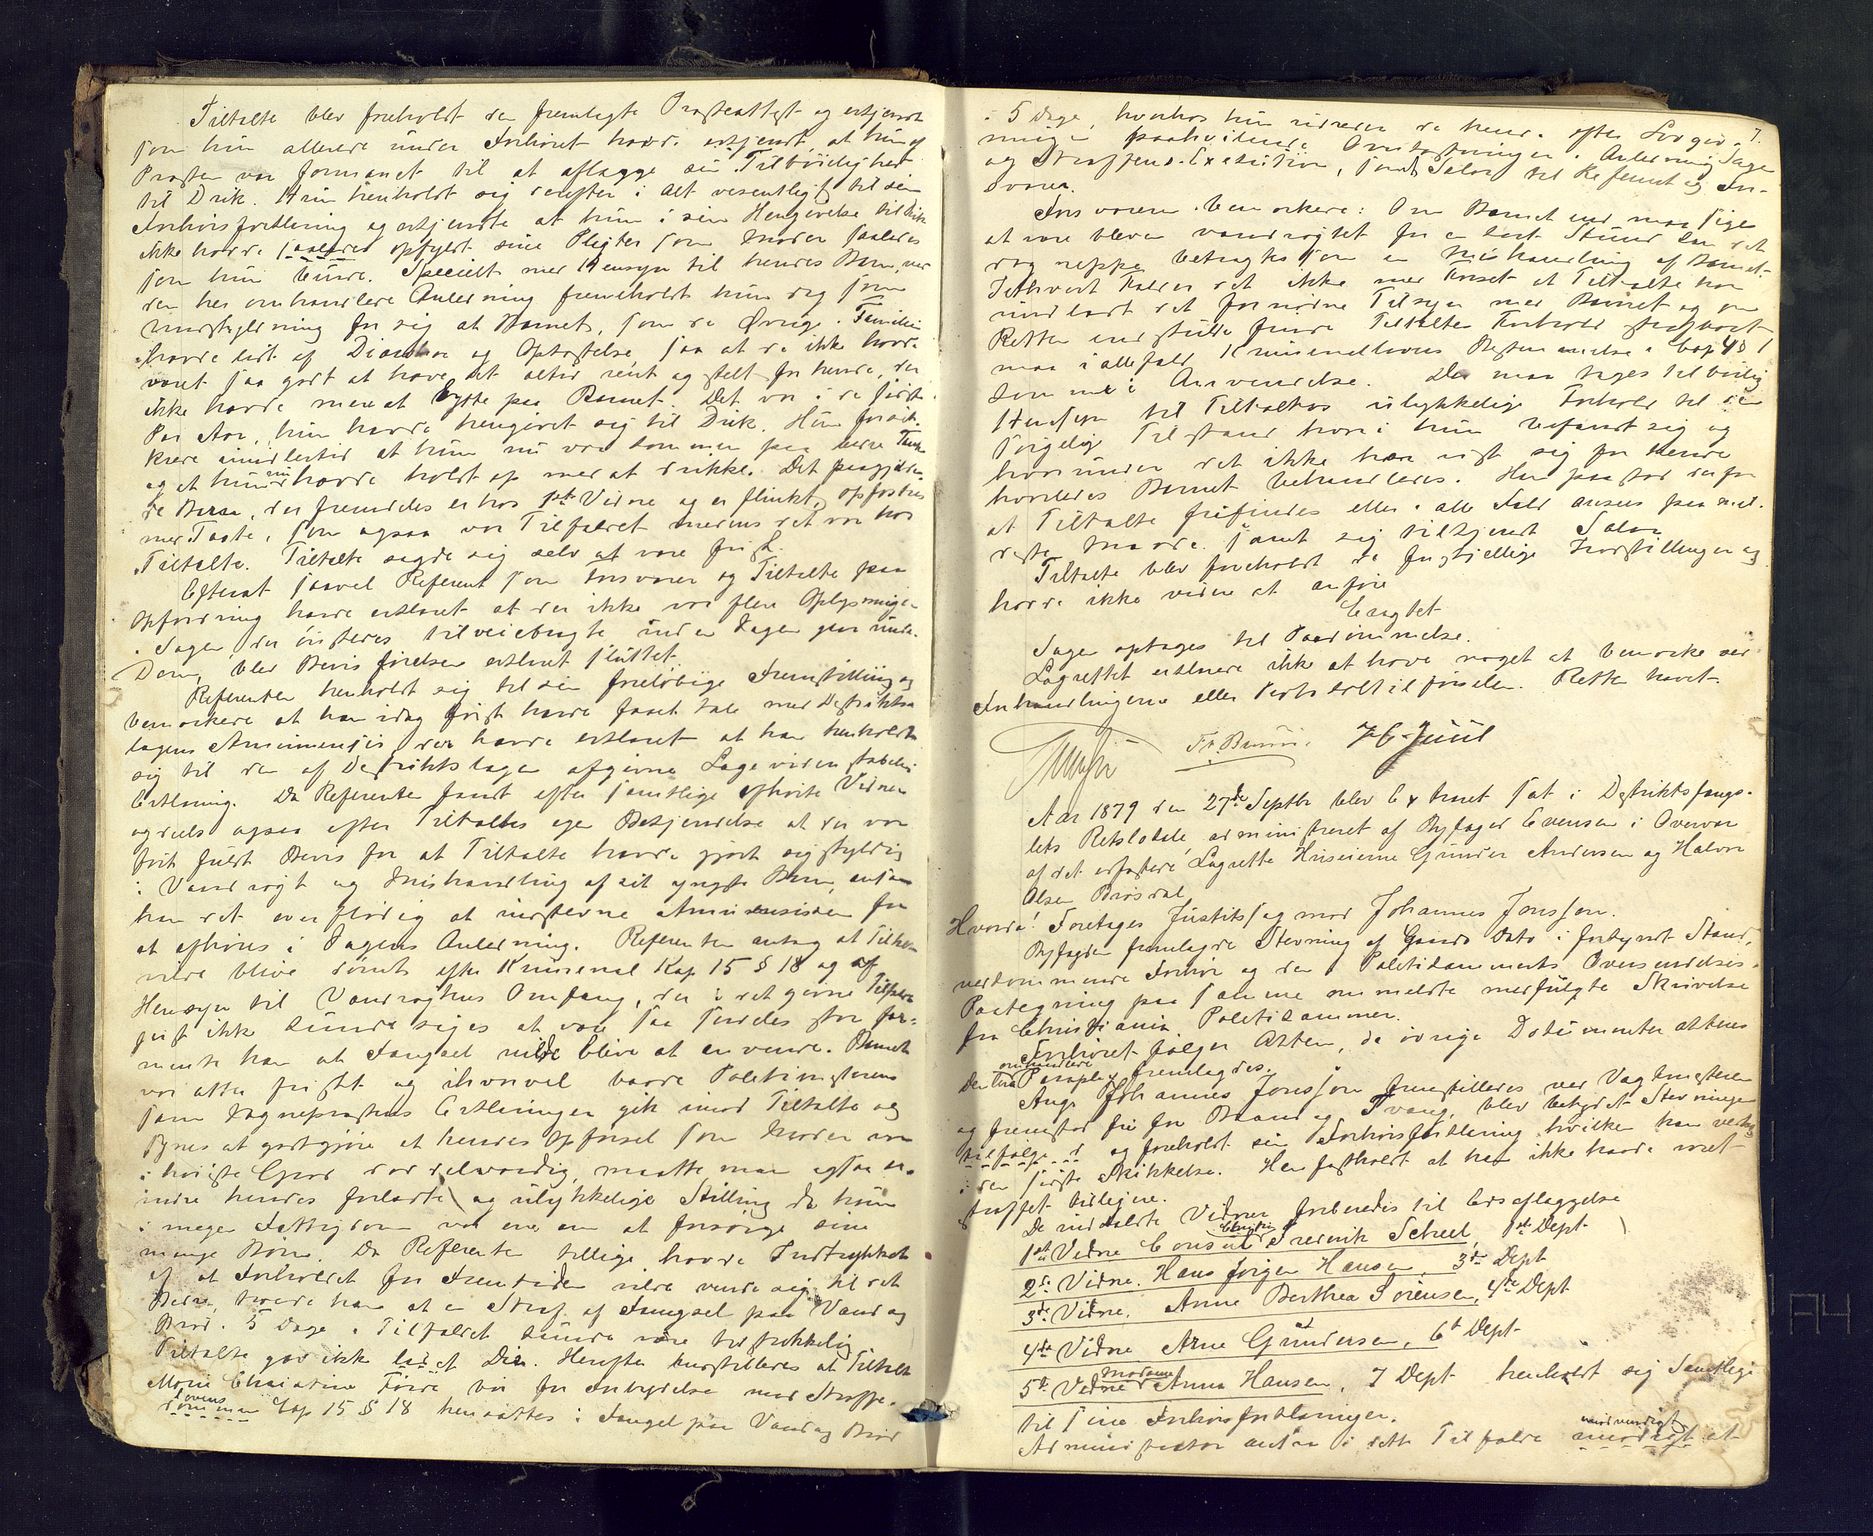 Tiltalte blev foreholdt den fremlagte Præsteattest og erkjendte
som hun allerede under Forhøret havde erkjendt, at hun af
Præsten var formanet til at aflægge sin Tilbøielighed
til Drik. Hun henholdt sig derefter i det væsentligste til sin
Forhørsforklaring og erkjendte at hun i sin Hengivelse til Drik
ikke havde opfyldt sine Pligter som Moder saaledes
som hun burde. Specielt med Hensyn til hendes Barn, med
den her omhandlede Anledning fremholdt hun dog som
Undskyldning for sig at Barnet, som de Øvrige i Familien
havde lidt af Diarrhoe og Opkastelse, saa at de ikke havde
været saa godt at have det altid rent og stelt for hende, der
ikke havde mere at bytte paa Barnet. Det var i de sidste
Par Aar, hun havde hengivet sig til Drik. Hun forsik-
krede imidlertid at hun nu var kommen paa bedre Tanker
og at hun nu havde holdt op med at drikke. Det paagjæld-
de Barn, der fremdeles er hos 1ste Vidne og er flinkt, opfostres
med Taate, som ogsaa var Tilfældet medens det var hos
Tiltalte. Tiltalte sagde sig selv at være frisk.
Efterat saavel Referent som Forsvarer og Tiltalte paa
Opfordring havde erklæret at der ikke var flere Oplysninger
i Sagen der ønskedes tilveiebragte inden Sagen gaar under
Dom, blev Bevisførelsen erklæret sluttet.
Referenten henholdt sig til sin foreløbige Fremstilling og
bemærkede at han idag først havde faaet tale med Distrikts
lægens Amanuensis, der havde erklæret at han henholdt
sig til den af Distriktslægen afgivne Lægevidenskabelige
Erklæring. Da Referenten fandt efter samtlige afhørte Vidner
og dels ogsaa efter Tiltaltes egen Bekjendelse at der var
frit fuldt Bevis for at Tiltalte havde gjort sig skyldig
i Vanrøgt og Mishandling af sit yngste Barn, ansaa
han det overflødig at indstevne Amanuensisen for
at afhøres i Dagens Anledning. Referenten antog at Tiltalte
vilde blive dømt efter Kriminal Kap 15 § 18 og af
Hensyn til Vanrøgtens Omfang, der i det givne Tilfælde
just ikke kunde siges at være saa særdeles stor for-
mente han at Fængsel vilde blive at anvende. Barnet
var atter friskt og ihvorvel baade Politimesterens
som Sognepræstens Erklæringer gik imod Tiltalte og
synes at godtgjøre at hendes Opførsel som Moder var
i høieste Grad dadelværdig, maatte man ogsaa er-
indre hendes forladte og ulykkelige Stilling da hun
i megen Fattigdom var ene om at forsørge sine
mange Børn. Da Referenten tillige havde Indtrykket
af at Forholdet for Fremtiden vilde vende sig til det
Bedre, troede han at en Straf af Fængsel paa Vand og
Brød i 5 Dage i Tilfældet kunde være tilstrækkelig
Tiltalte gav ikke Die. Herefter indstilledes at Tiltalte
Marie Christine bør for Forbrydelse mod Straffe-
lovens Cap 15 § 18 hensættes i Fængsel paa Vand og Brød
7.
i 5 Dage, hvorhos hun udreder de hende efter Lovgiv-
ningen paahvilende Omkostninger i Anledning Sagen
og Straffens Exekution, samt Salær til Referent og For-
svarer.
Forsvareren bemærkede: Om Barnet end maa siges
at være bleven vanrøgtet for en kort Stund kan det
dog neppe betragtes som en Mishandling af Barnet.
Ialhvert Falder det ikke med Forset at Tiltalte har
undladt det fornødne Tilsyn med Barnet og om
Retten end skulde finde Tiltaltes Forhold strafbart
maa i alle fald Kriminallovens Bestemmelse i Cap
komme i Anvendelse. Der maa tages tilbørlig
Hensyn til Tiltaltes ulykkelige Forhold til den
sørgelige Tilstand hvori hun befandt sig og
hvorunder det ikke har vist sig for hende
hvorledes Barnet behandledes. Han paastod derfor
at Tiltalte frifindes eller i alle Fald ansees paa mil-
deste Maade samt sig tilkjendt Salær
Tiltalte blev foreholdt de forskjellige Indstillinger og
havde ikke videre at anføre
Eragtet
Sagen optages til Paadømmelse.
Lagrettet erklærede ikke at have noget at bemærke ved
Forhandlingerne eller Protokoltilførselen. Retten hævet.
Fr. Bruun. J C Juul
Aar 1879 den 27de Septbr blev Extraret sat i Distriktsfængs-
lets Retslokale, administreret af Byfoged Evensen i Overvær
af det erfastede Lagrette Huseierne Gunder Andersen og Halvor
Olsen Brøsdal
Hvorda! Foretages Justitssag mod Johannes Jonsson.
Byfogden fremlagde Stevning af Gaards Dato i forkyndt Stand,
vedkommende Forhør og den i Politikammerets Oversendelses-
Paategning paa samme ommeldte medfulgte Skrivelse
fra Christiania Politikammer.
Forhøret følger Akten, de øvrige Dokumenter akteres
Den omhandlede Paraply fremlagdes.
Ang. Johannes Jonsson fremstilledes ved Vagtmesteren
og fremstod fri for Baand og Tvang, blev betydet Stevningen
og foreholdt sin Forhørsforklaring hvilken han vedtog
i den første Skikkelse. Han fastholdt at han ikke havde været
straffet tidligere.
De indkaldte Vidner forberedes til Edsaflæggelse
1ste Vidne Consul Christian Fredrik Scheel, 1ste Dept
2de Vidne. Hans Jørgen Hansen, 3die Dept
3die Vidne. Anne Berthea Sørensen, 4de Dept
4de Vidne Arne Gundersen, 6te Dept
5te Vidne Madame Anna Hansen, 7 Dept henholdt sig samtlige
til sine Forhørsforklaringer.
Administrator ansaa i dette Tilfælde unødvendigt at